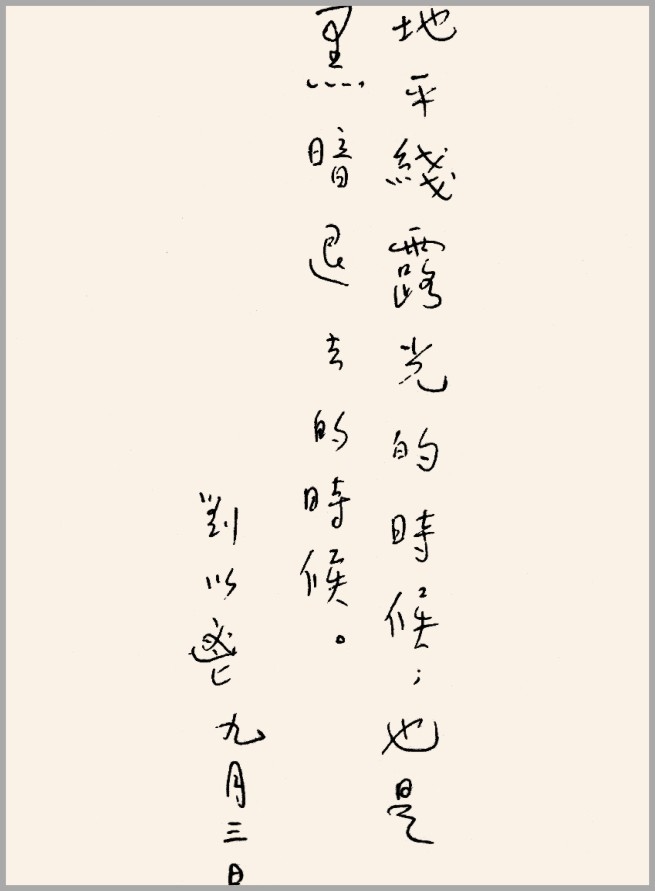 地平綫露光的時候；也是
黑暗退去的時候。
劉以鬯 九月三日